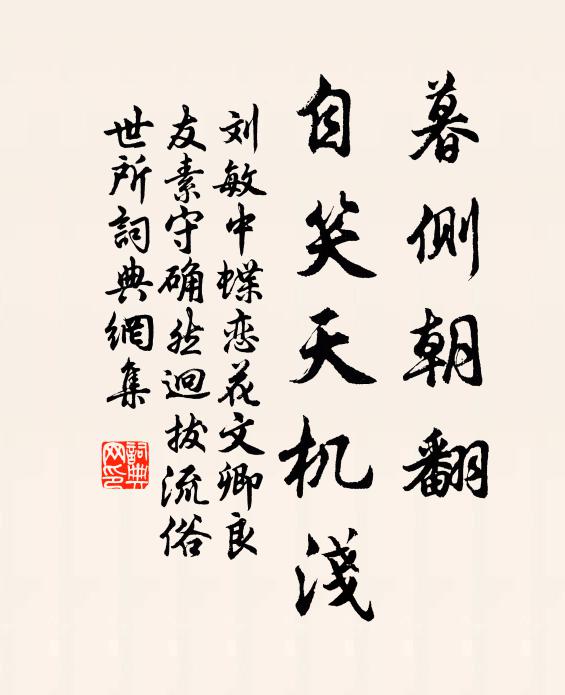 暮侧朝翻
自笑天机浅
刘敏中蝶恋花文卿良
友素守确然迥拔流俗
世所詞典網集
詞典网印